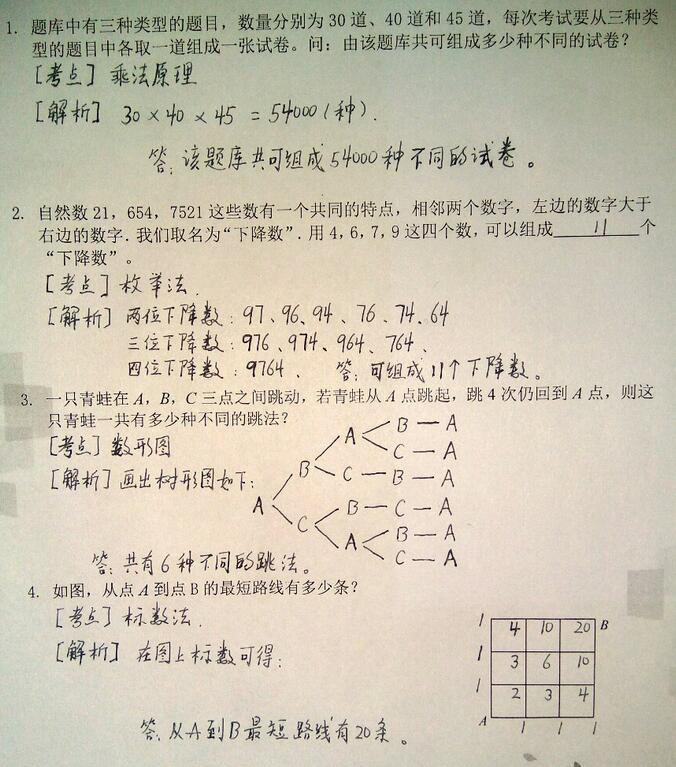 1. 题库中有三种类型的题目，数量分别为30道、40道和45道，每次考试要从三种类
型的题目中各取一道组成一张试卷。问：由该题库共可组成多少种不同的试卷？
[考点] 乘法原理
[解析] 30×40×45=54000(种).
答：该题库共可组成54000种不同的试卷。
2. 自然数21，654，7521这些数有一个共同的特点，相邻两个数字，左边的数字大于
右边的数字.我们取名为“下降数”.用4,6,7,9这四个数,可以组成 11 个
“下降数”。
[考点] 枚举法.
[解析] 两位下降数：97、96、94、76、74、64
三位下降数：976、974、964、764、
四位下降数：9764、 答：可组成11个下降数。
3. 一只青蛙在A，B，C三点之间跳动，若青蛙从A点跳起，跳4次仍回到A点，则这
只青蛙一共有多少种不同的跳法？
[考点] 数形图
[解析] 画出树形图如下：
B — A
A
C — A
B
C — B — A
A
B — C — A
C
B — A
A
C — A
答：共有6种不同的跳法。
4. 如图，从点A到点B的最短路线有多少条？
[考点] 标数法.
[解析] 在图上标数可得：
1 4 10 20 B
1 3 6 10
1 2 3 4
A 1 1 1
答：从A到B最短路线有20条。